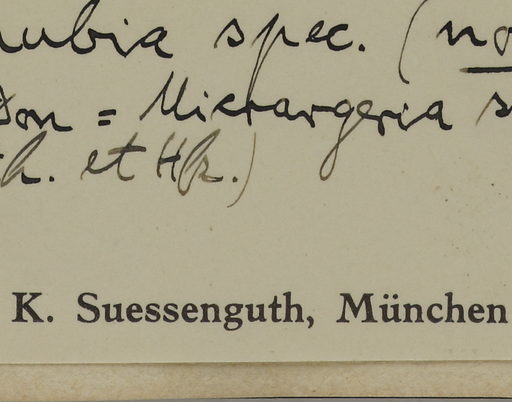 nubia spec. (no
Don = Micrargeria s
h. et Hk.)
K. Suessenguth, München